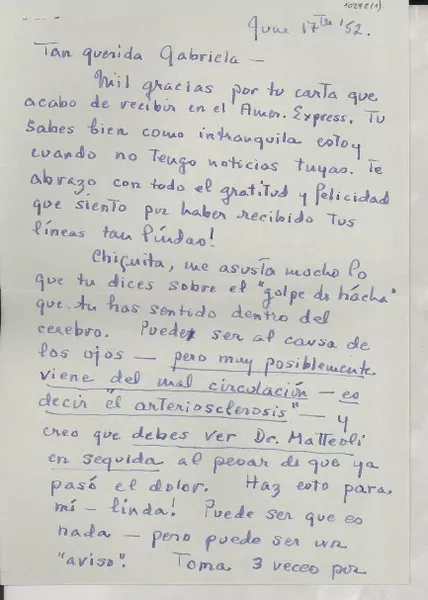 1029211
June 17th '52.
Tan querida Gabriela —
Mil gracias por tu carta que
acabo de recibir en el Amer. Express. Tu
sabes bien como intranquila estoy
cuando no Tengo noticias tuyas. Te
abrazo con todo el gratitud y felicidad
que siento por haber recibido Tus
líneas tan lindas!
Chiquita, me asusta mucho lo
que tu dices sobre el "golpe de hácha"
que tu has sentido dentro del
cerebro. Puede ser al causa de
los ojos — pero muy posiblemente
viene del mal circulación — es
decir "el arteriosclerosis" — y
creo que debes ver Dr. Matteoli
en seguida al pesar de que ya
pasó el dolor. Haz esto para
mí — linda! Puede ser que es
nada — pero puede ser un
"aviso". Toma 3 veces por